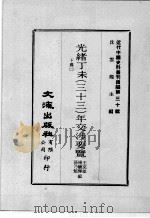 近代中國史料叢刊續編第三十輯
沈雲龍主編
光緒丁未(三十三)年交涉要覽
文海出版社有限公司印行